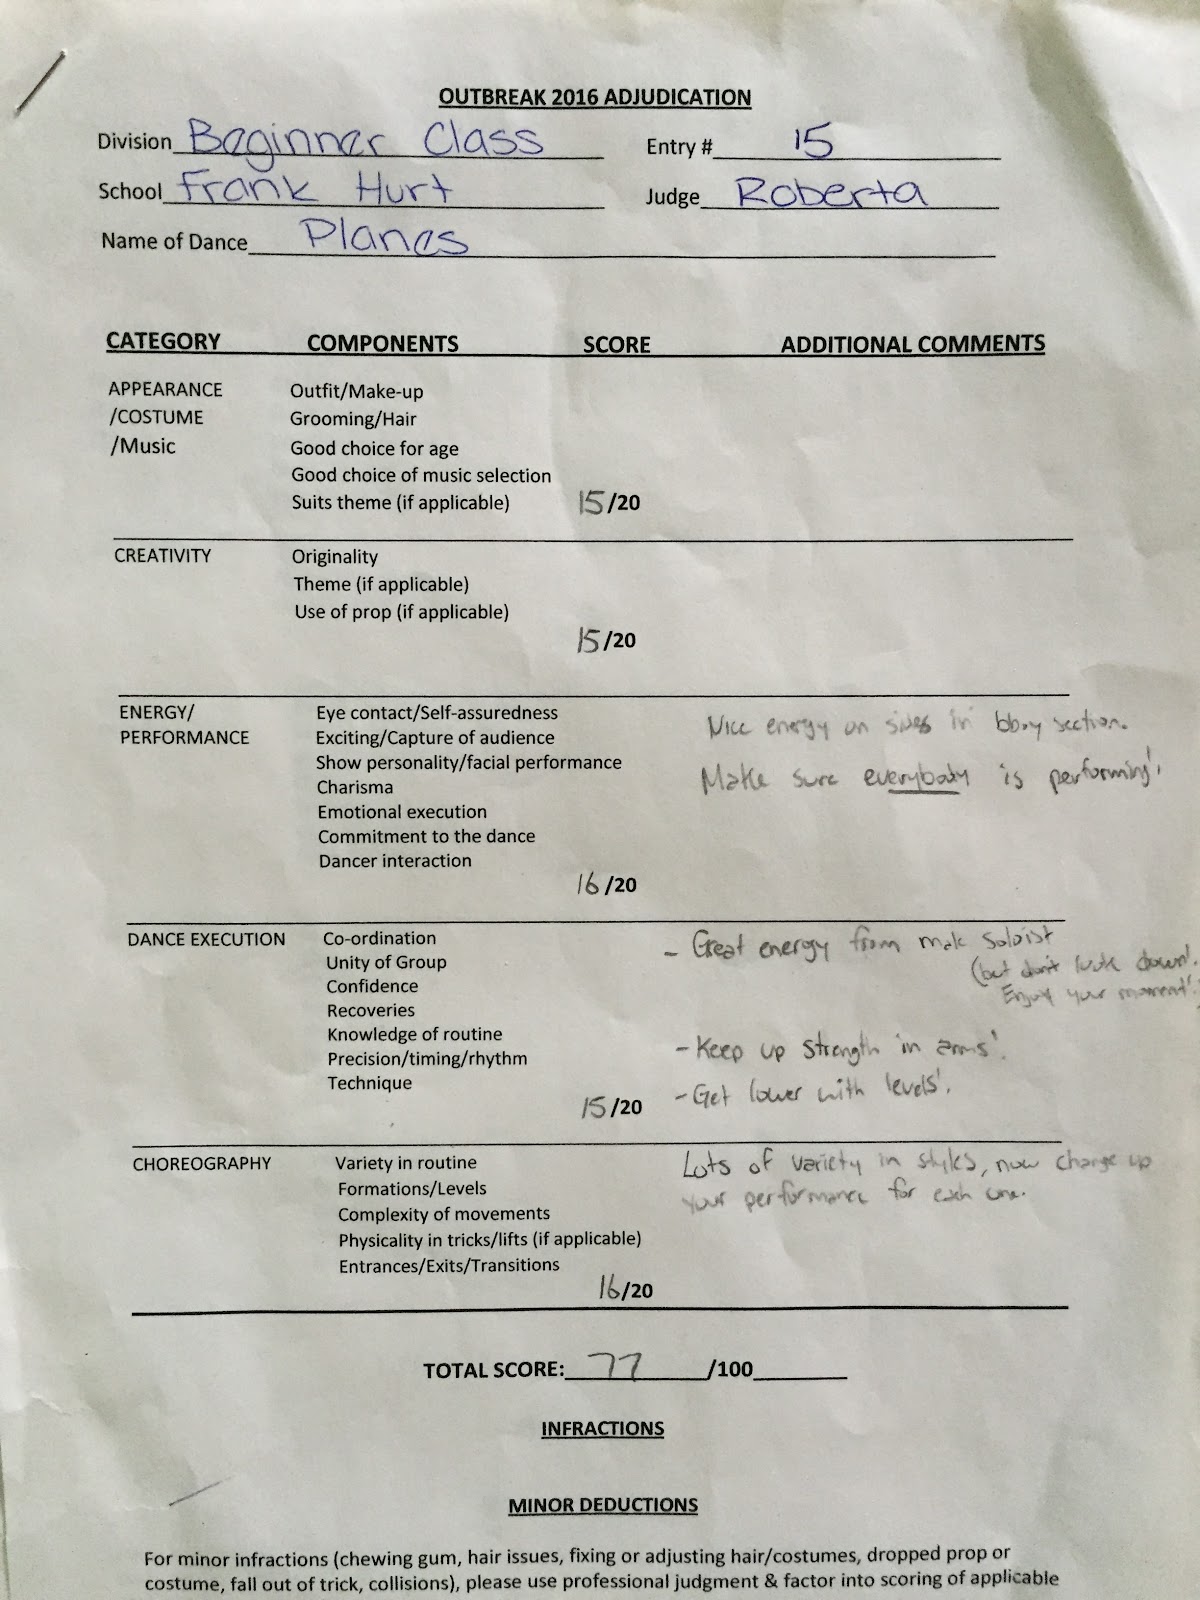 OUTBREAK 2016 ADJUDICATION
Division Beginner Class Entry # 15
School Frank Hurt Judge Roberta
Name of Dance Planes
CATEGORY COMPONENTS SCORE ADDITIONAL COMMENTS
APPEARANCE Outfit/Make-up
/COSTUME Grooming/Hair
/Music Good choice for age
Good choice of music selection
Suits theme (if applicable) 15/20
CREATIVITY Originality
Theme (if applicable)
Use of prop (if applicable)
15/20
ENERGY/ Eye contact/Self-assuredness Nice energy on sides in bboy section.
PERFORMANCE Exciting/Capture of audience
Show personality/facial performance Make sure everybody is performing!
Charisma
Emotional execution
Commitment to the dance
Dancer interaction
16/20
DANCE EXECUTION Co-ordination - Great energy from male soloist
Unity of Group (but don't look down!
Confidence Enjoy your moment!)
Recoveries
Knowledge of routine - Keep up strength in arms!
Precision/timing/rhythm
Technique - Get lower with levels!
15/20
CHOREOGRAPHY Variety in routine Lots of variety in styles, now change up
Formations/Levels your performance for each one.
Complexity of movements
Physicality in tricks/lifts (if applicable)
Entrances/Exits/Transitions
16/20
TOTAL SCORE: 77 /100
INFRACTIONS
MINOR DEDUCTIONS
For minor infractions (chewing gum, hair issues, fixing or adjusting hair/costumes, dropped prop or
costume, fall out of trick, collisions), please use professional judgment & factor into scoring of applicable